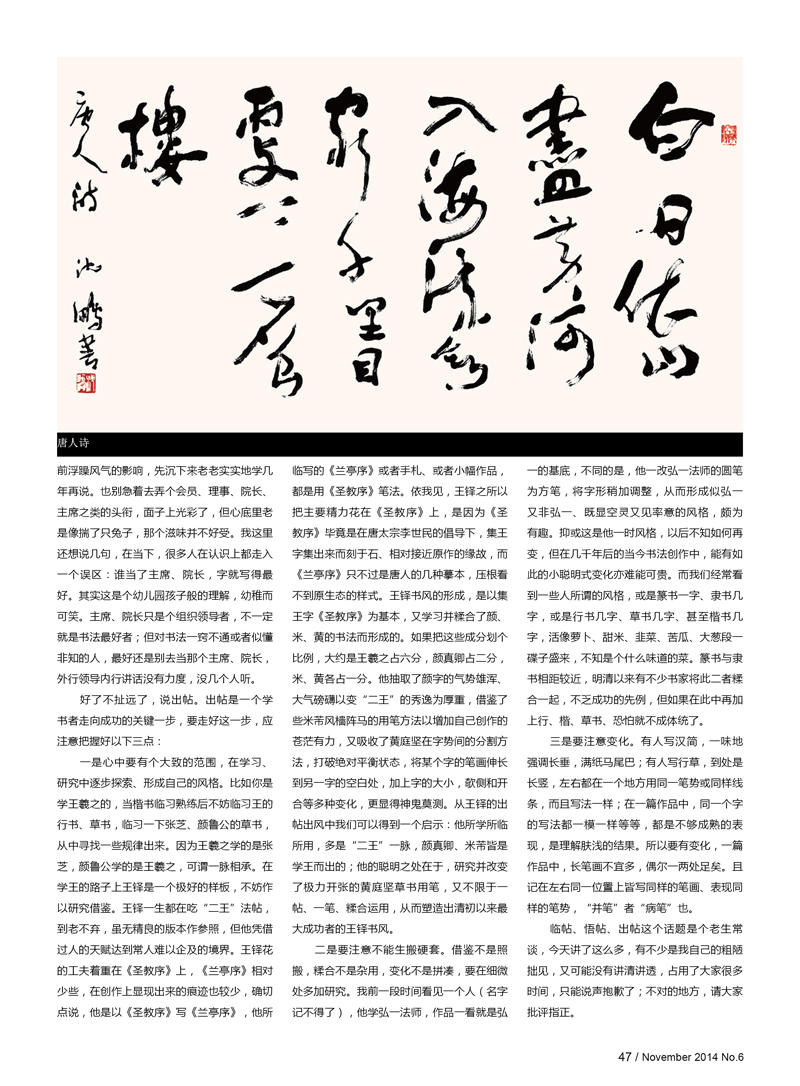 白日依山
盡黄河
入海流欲
窮千里目
更上一層
樓
唐人詩 沈鵬書
唐人诗
前浮躁风气的影响，先沉下来老老实实地学几
年再说。也别急着去弄个会员、理事、院长、
主席之类的头衔，面子上光彩了，但心底里老
是像揣了只兔子，那个滋味并不好受。我这里
还想说几句，在当下，很多人在认识上都走入
一个误区：谁当了主席、院长，字就写得最
好。其实这是个幼儿园孩子般的理解，幼稚而
可笑。主席、院长只是个组织领导者，不一定
就是书法最好者；但对书法一窍不通或者似懂
非知的人，最好还是别去当那个主席、院长，
外行领导内行讲话没有力度，没几个人听。
好了不扯远了，说出帖。出帖是一个学
书者走向成功的关键一步，要走好这一步，应
注意把握好以下三点：
一是心中要有个大致的范围，在学习、
研究中逐步探索、形成自己的风格。比如你是
学王羲之的，当楷书临习熟练后不妨临习王的
行书、草书，临习一下张芝、颜鲁公的草书，
从中寻找一些规律出来。因为王羲之学的是张
芝，颜鲁公学的是王羲之，可谓一脉相承。在
学王的路子上王铎是一个极好的样板，不妨作
以研究借鉴。王铎一生都在吃“二王”法帖，
到老不弃，虽无精良的版本作参照，但他凭借
过人的天赋达到常人难以企及的境界。王铎花
的工夫着重在《圣教序》上，《兰亭序》相对
少些，在创作上显现出来的痕迹也较少，确切
点说，他是以《圣教序》写《兰亭序》，他所
临写的《兰亭序》或者手札、或者小幅作品，
都是用《圣教序》笔法。依我见，王铎之所以
把主要精力花在《圣教序》上，是因为《圣
教序》毕竟是在唐太宗李世民的倡导下，集王
字集出来而刻于石、相对接近原作的缘故，而
《兰亭序》只不过是唐人的几种摹本，压根看
不到原生态的样式。王铎书风的形成，是以集
王字《圣教序》为基本，又学习并糅合了颜、
米、黄的书法而形成的。如果把这些成分划个
比例，大约是王羲之占六分，颜真卿占二分，
米、黄各占一分。他抽取了颜字的气势雄浑、
大气磅礴以变“二王”的秀逸为厚重，借鉴了
些米芾风樯阵马的用笔方法以增加自己创作的
苍茫有力，又吸收了黄庭坚在字势间的分割方
法，打破绝对平衡状态，将某个字的笔画伸长
到另一字的空白处，加上字的大小，欹侧和开
合等多种变化，更显得神鬼莫测。从王铎的出
帖出风中我们可以得到一个启示：他所学所临
所用，多是“二王”一脉，颜真卿、米芾皆是
学王而出的；他的聪明之处在于，研究并改变
了极力开张的黄庭坚草书用笔，又不限于一
帖、一笔、糅合运用，从而塑造出清初以来最
大成功者的王铎书风。
二是要注意不能生搬硬套。借鉴不是照
搬，糅合不是杂用，变化不是拼凑，要在细微
处多加研究。我前一段时间看见一个人（名字
记不得了），他学弘一法师，作品一看就是弘
一的基底，不同的是，他一改弘一法师的圆笔
为方笔，将字形稍加调整，从而形成似弘一
又非弘一、既显空灵又见率意的风格，颇为
有趣。抑或这是他一时风格，以后不知如何再
变，但在几千年后的当今书法创作中，能有如
此的小聪明式变化亦难能可贵。而我们经常看
到一些人所谓的风格，或是篆书一字、隶书几
字，或是行书几字、草书几字、甚至楷书几
字，活像萝卜、甜米、韭菜、苦瓜、大葱段一
碟子盛来，不知是个什么味道的菜。篆书与隶
书相距较近，明清以来有不少书家将此二者糅
合一起，不乏成功的先例，但如果在此中再加
上行、楷、草书、恐怕就不成体统了。
三是要注意变化。有人写汉简，一味地
强调长垂，满纸马尾巴；有人写行草，到处是
长竖，左右都在一个地方用同一笔势或同样线
条，而且写法一样；在一篇作品中，同一个字
的写法都一模一样等等，都是不够成熟的表
现，是理解肤浅的结果。所以要有变化，一篇
作品中，长笔画不宜多，偶尔一两处足矣。且
记在左右同一位置上皆写同样的笔画、表现同
样的笔势，“并笔”者“病笔”也。
临帖、悟帖、出帖这个话题是个老生常
谈，今天讲了这么多，有不少是我自己的粗陋
拙见，又可能没有讲清讲透，占用了大家很多
时间，只能说声抱歉了；不对的地方，请大家
批评指正。
47 / November 2014 No.6